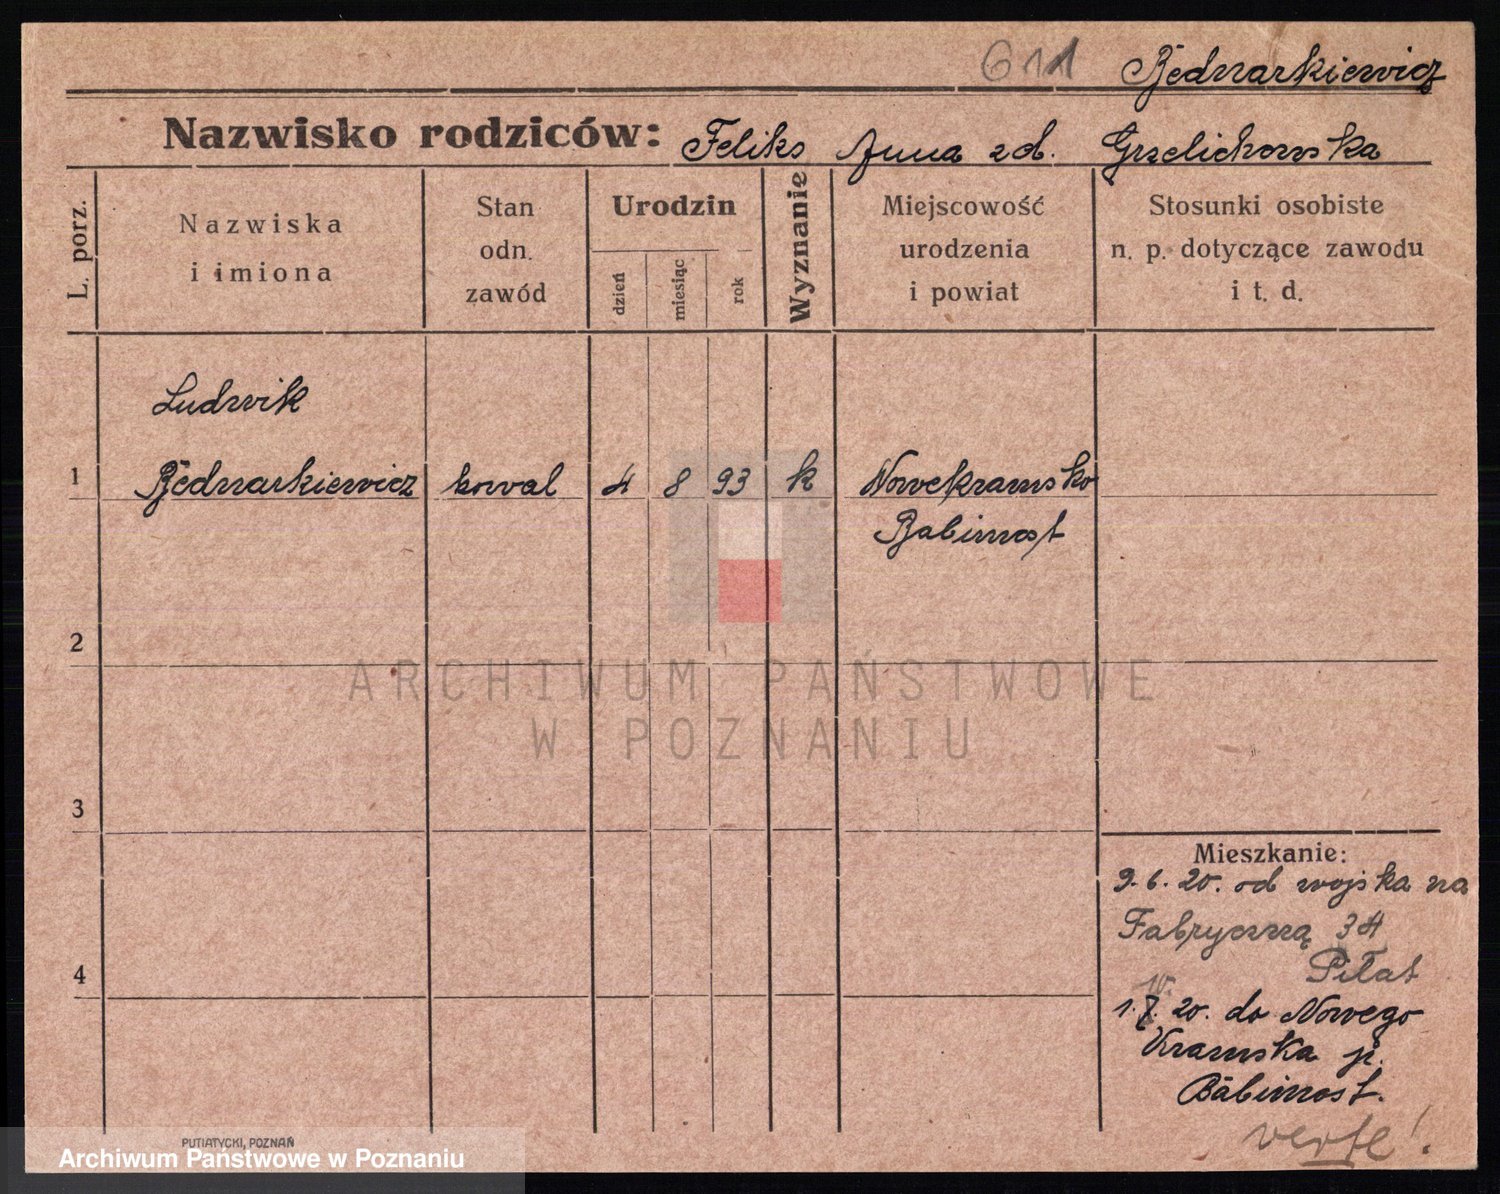 611 Bednarkiewicz
Nazwisko rodziców: Feliks Anna zd. Grzelichowska
L. porz.
Nazwiska
i imiona
Stan
odn.
zawód
Urodzin
dzień
miesiąc
rok
Wyznanie
Miejscowość
urodzenia
i powiat
Stosunki osobiste
n. p. dotyczące zawodu
i t. d.
Ludwik
1 Bednarkiewicz kowal 4 8 93 k Nowekramsko
Babimost
2
ARCHIWUM PAŃSTWOWE
W POZNANIU
3
Mieszkanie:
9. 6. 20. od wojska na
Fabryczną 34
4 Piłat
10.
1. 20. do Nowego
Kramska p.
Babimost.
verte!
PUTIATYCKI, POZNAŃ
Archiwum Państwowe w Poznaniu